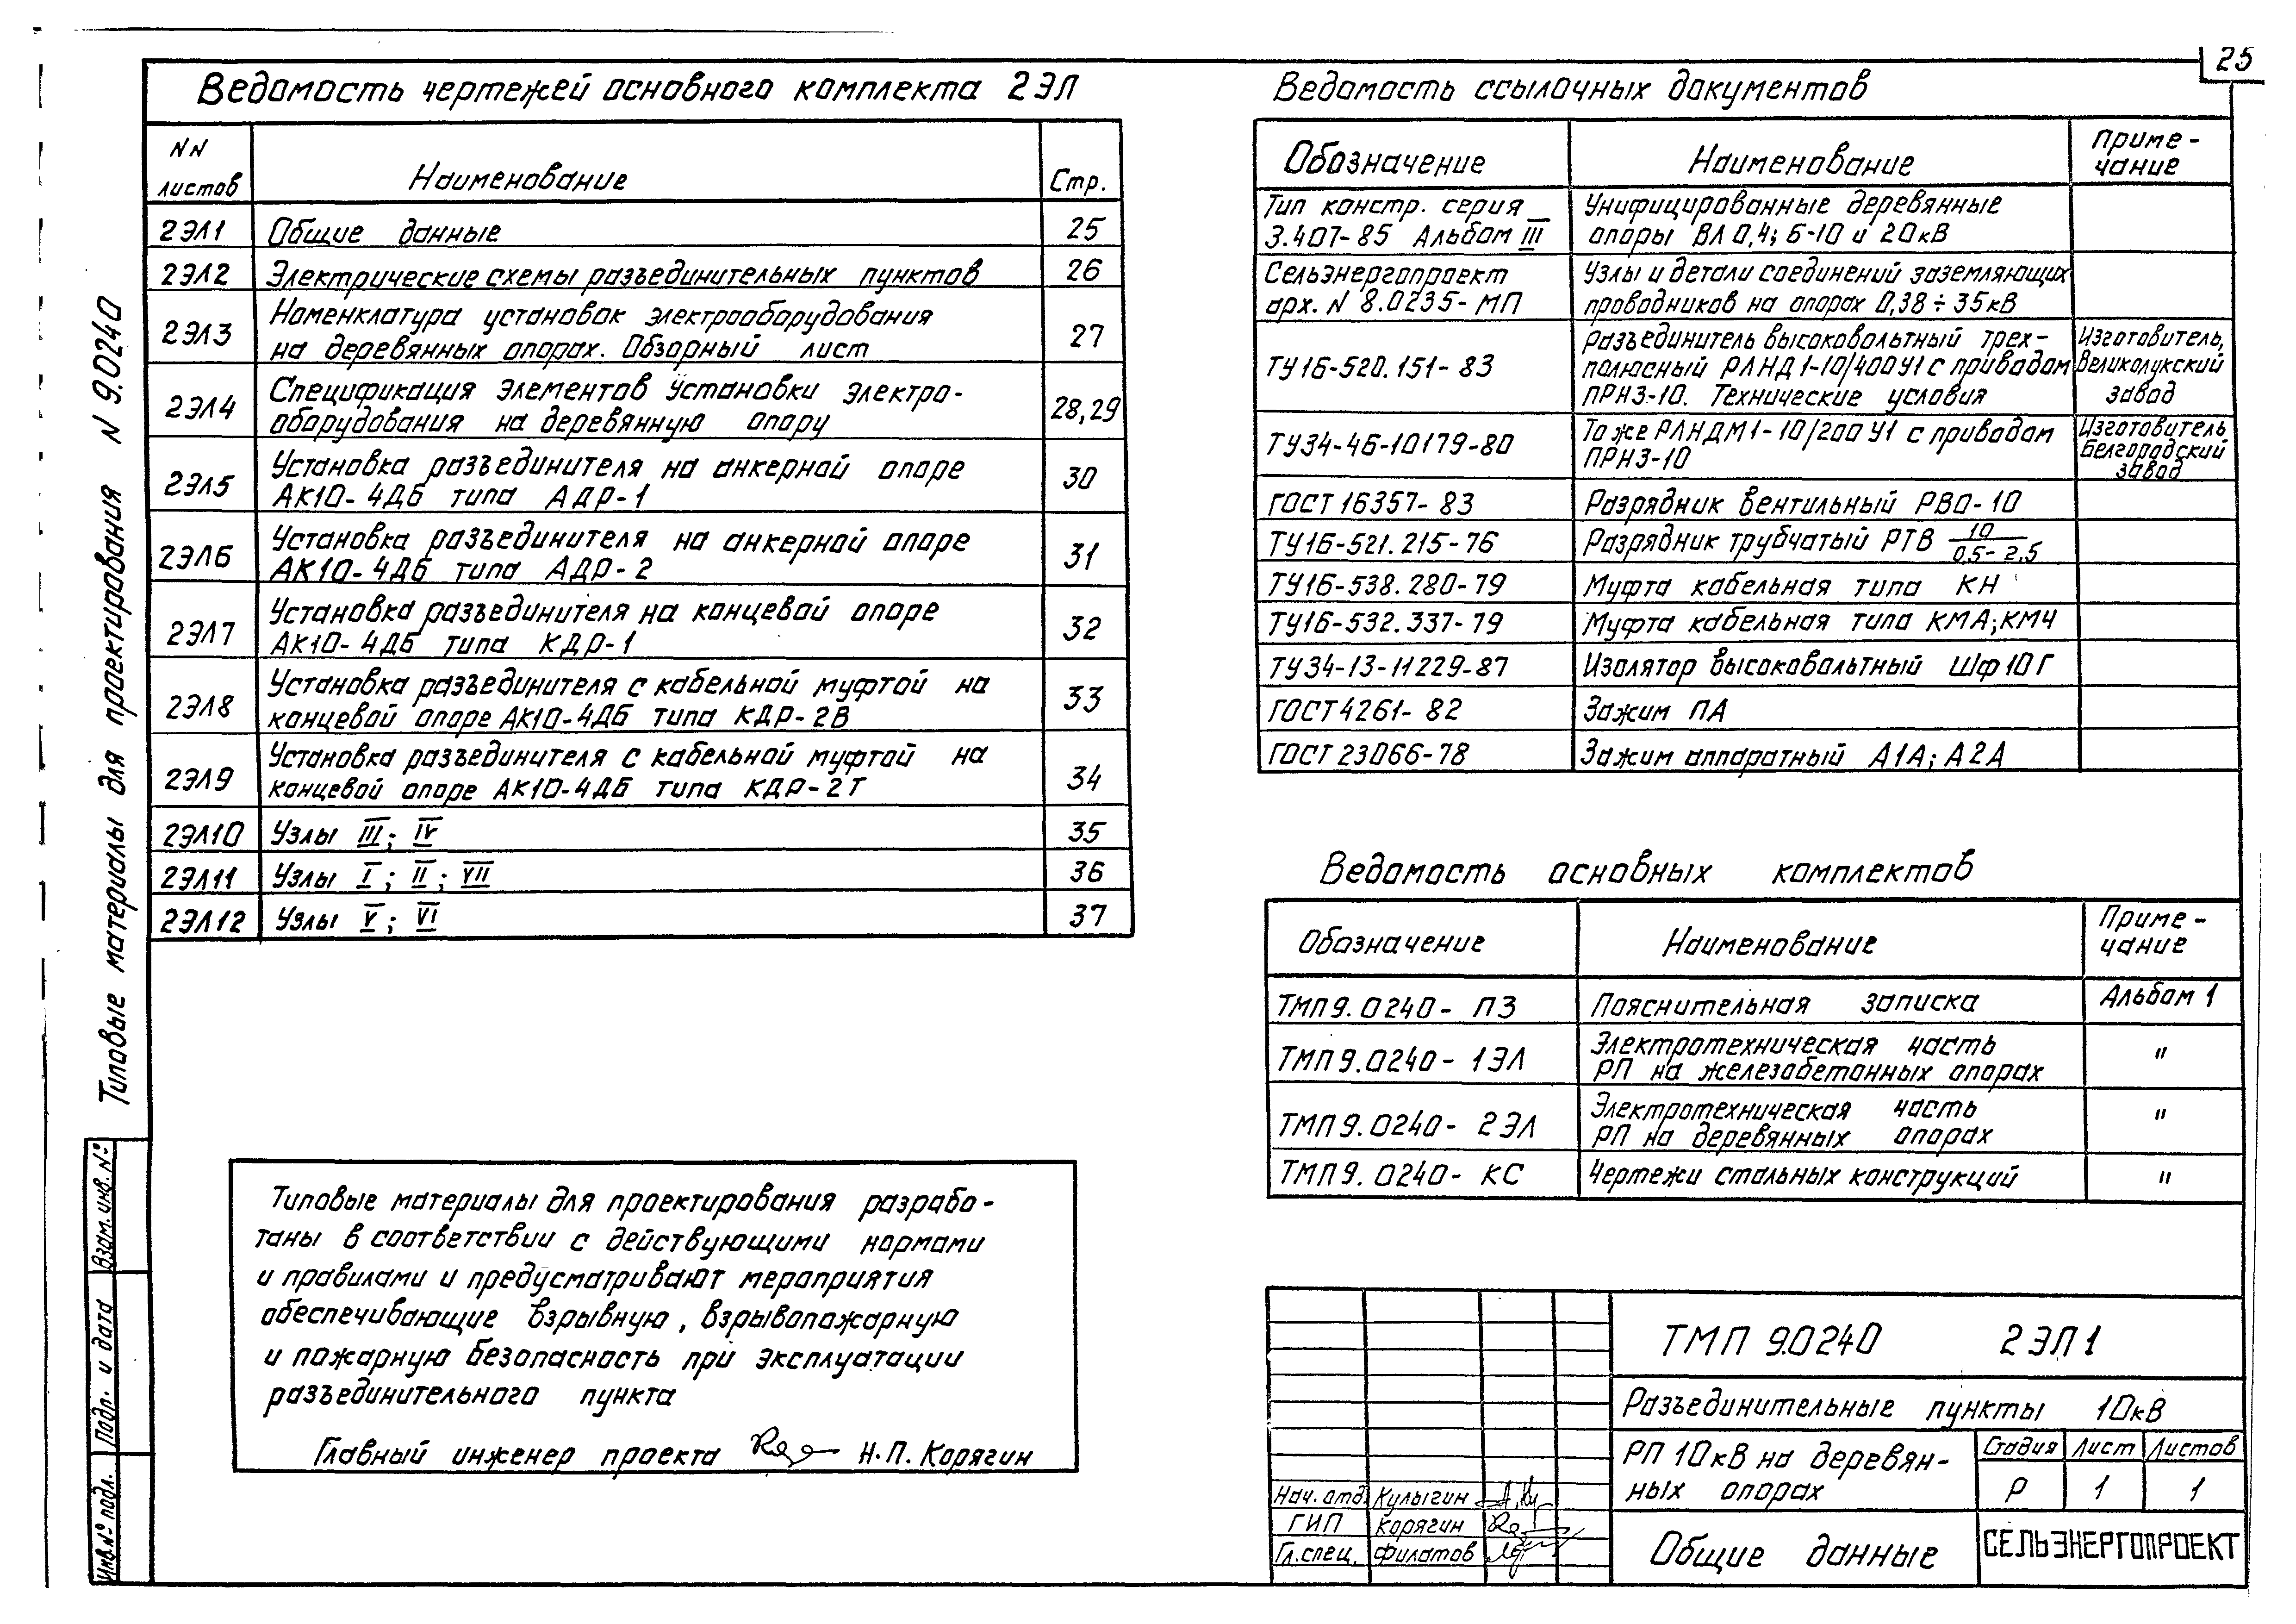 25
Ведомость чертежей основного комплекта 2ЭЛ
NN листов
Наименование
Стр.
2ЭЛ1 Общие данные 25
2ЭЛ2 Электрические схемы разъединительных пунктов 26
2ЭЛ3 Номенклатура установок электрооборудования
на деревянных опорах. Обзорный лист 27
2ЭЛ4 Спецификация элементов установки электро-
оборудования на деревянную опору 28,29
2ЭЛ5 Установка разъединителя на анкерной опоре
АК10-4ДБ типа АДР-1 30
2ЭЛ6 Установка разъединителя на анкерной опоре
АК10-4ДБ типа АДР-2 31
2ЭЛ7 Установка разъединителя на концевой опоре
АК10-4ДБ типа КДР-1 32
2ЭЛ8 Установка разъединителя с кабельной муфтой на
концевой опоре АК10-4ДБ типа КДР-2В 33
2ЭЛ9 Установка разъединителя с кабельной муфтой на
концевой опоре АК10-4ДБ типа КДР-2Т 34
2ЭЛ10 Узлы III; IV 35
2ЭЛ11 Узлы I; II; VII 36
2ЭЛ12 Узлы V; VI 37
Типовые материалы для проектирования работа-
таны в соответствии с действующими нормами
и правилами и предусматривают мероприятия
обеспечивающие взрывную, взрывопожарную
и пожарную безопасность при эксплуатации
разъединительного пункта
Главный инженер проекта Н.П. Корягин
Ведомость ссылочных документов
Обозначение Наименование Приме-
чание
Тип констр. серия
3.407-85 Альбом III
Унифицированные деревянные
опоры ВЛ 0,4; 6-10 и 20кВ
Сельэнергопроект
арх. N 8.0235-МП
Узлы и детали соединений заземляющих
проводников на опорах 0,38÷35кВ
ТУ16-520.151-83
Разъединитель высоковольтный трех-
полюсный РЛНД1-10/400У1 с приводом
ПРНЗ-10. Технические условия
Изготовитель,
Великолукский
завод
ТУ34-46-10179-80
То же РЛНДМ1-10/200У1 с приводом
ПРНЗ-10
Изготовитель
Белгородский
завод
ГОСТ 16357-83 Разрядник вентильный РВО-10
ТУ16-521.215-76 Разрядник трубчатый РТВ 10/0,5-2,5
ТУ16-538.280-79 Муфта кабельная типа КН
ТУ16-532.337-79 Муфта кабельная типа КМА; КМЧ
ТУ34-13-11229-87 Изолятор высоковольтный ШФ10Г
ГОСТ 4261-82 Зажим ПА
ГОСТ 23066-78 Зажим аппаратный А1А; А2А
Ведомость основных комплектов
Обозначение Наименование Приме-
чание
ТМП9.0240-ПЗ Пояснительная записка Альбом 1
ТМП9.0240-1ЭЛ Электротехническая часть
РП на железобетонных опорах "
ТМП9.0240-2ЭЛ Электротехническая часть
РП на деревянных опорах "
ТМП9.0240-КС Чертежи стальных конструкций "
ТМП 9.0240 2ЭЛ1
Разъединительные пункты 10кВ
РП 10кВ на деревян-
ных опорах
Стадия Лист Листов
Р 1 1
Общие данные
СЕЛЬЭНЕРГОПРОЕКТ
Нач. отд. Кулыгин
ГИП Корягин
Гл.спец. Филатов
Типовые материалы для проектирования N 9.0240
Взам.инв.№
Подп. и дата
Инв.№ подл.